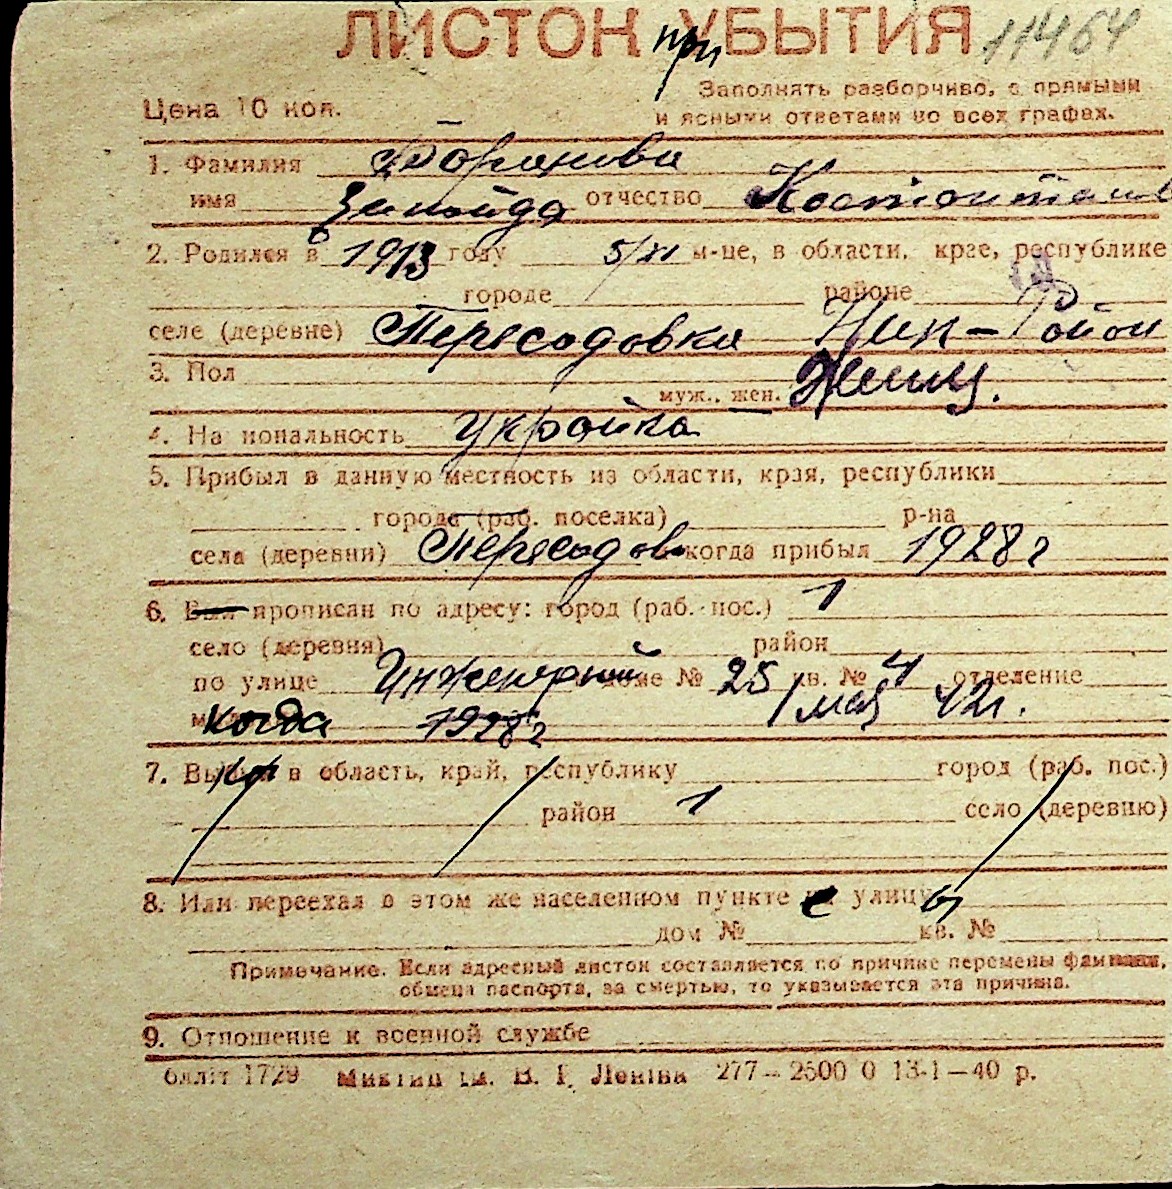 ЛИСТОК УБЫТИЯ при 11464
Цена 10 коп.
Заполнять разборчиво, с прямыми
и ясными ответами во всех графах.
1. Фамилия
имя Зинаида отчество Костонтинов
2. Родился в 1913 году 5/XI м-це, в области, крае, республике
городе районе
селе (деревне) Пересадовка Ник-Район
3. Пол муж., жен. Женщ.
4. На иональность украйка
5. Прибыл в данную местность из области, края, республики
города (раб. поселка) р-на
села (деревни) Пересадов когда прибыл 1928 г
6. Был прописан по адресу: город (раб. пос.) 1
село (деревня) район
по улице Инженерний доме № 25 кв. № 4 отделение
когда 1928 г 1 мая 42 г.
7. Выбыл в область, край, республику город (раб. пос.)
район 1 село (деревню)
8. Или переехал в этом же населенном пункте с улицы
дом № кв. №
Примечание. Если адресный листок составляется по причине перемены фамилии,
обмена паспорта, за смертью, то указывается эта причина.
9. Отношение к военной службе
бллiт 1729 Миктип iм. В. I. Ленiна 277—2500 0 13-1—40 р.